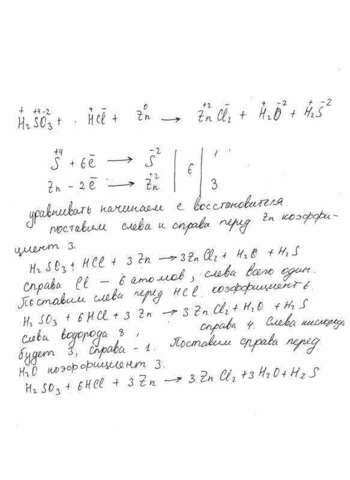 + +4 -2 + - 0 +2 - + -2 + -2
H₂SO₃ + . HCl + Zn → ZnCl₂ + H₂O + H₂S
+4 -2
S + 6ē → S | | 1
+2 6
Zn - 2ē → Zn | | 3
уравнивать начинаем с восстановителя
поставим слева и справа перед Zn коэффи-
циент 3.
H₂SO₃ + HCl + 3Zn → 3ZnCl₂ + H₂O + H₂S
справа Cl – 6 атомов, слева всего один.
Поставим слева перед HCl коэффициент 6.
H₂SO₃ + 6HCl + 3Zn → 3ZnCl₂ + H₂O + H₂S
слева водорода 8, справа 4. Слева кислорода
будет 3, справа - 1. Поставим справа перед
H₂O коэффициент 3.
H₂SO₃ + 6HCl + 3Zn → 3ZnCl₂ + 3H₂O + H₂S